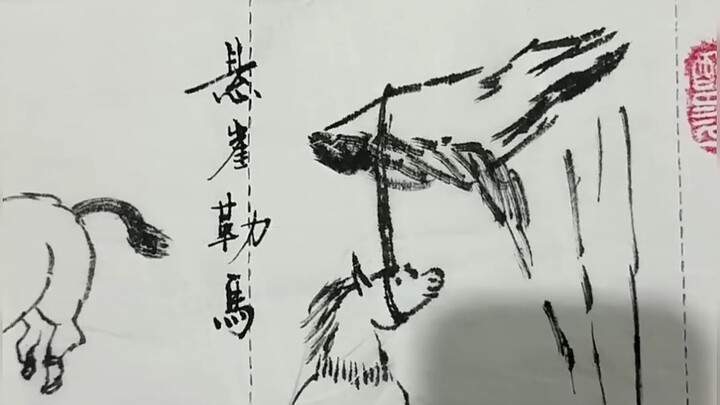 悬崖勒馬